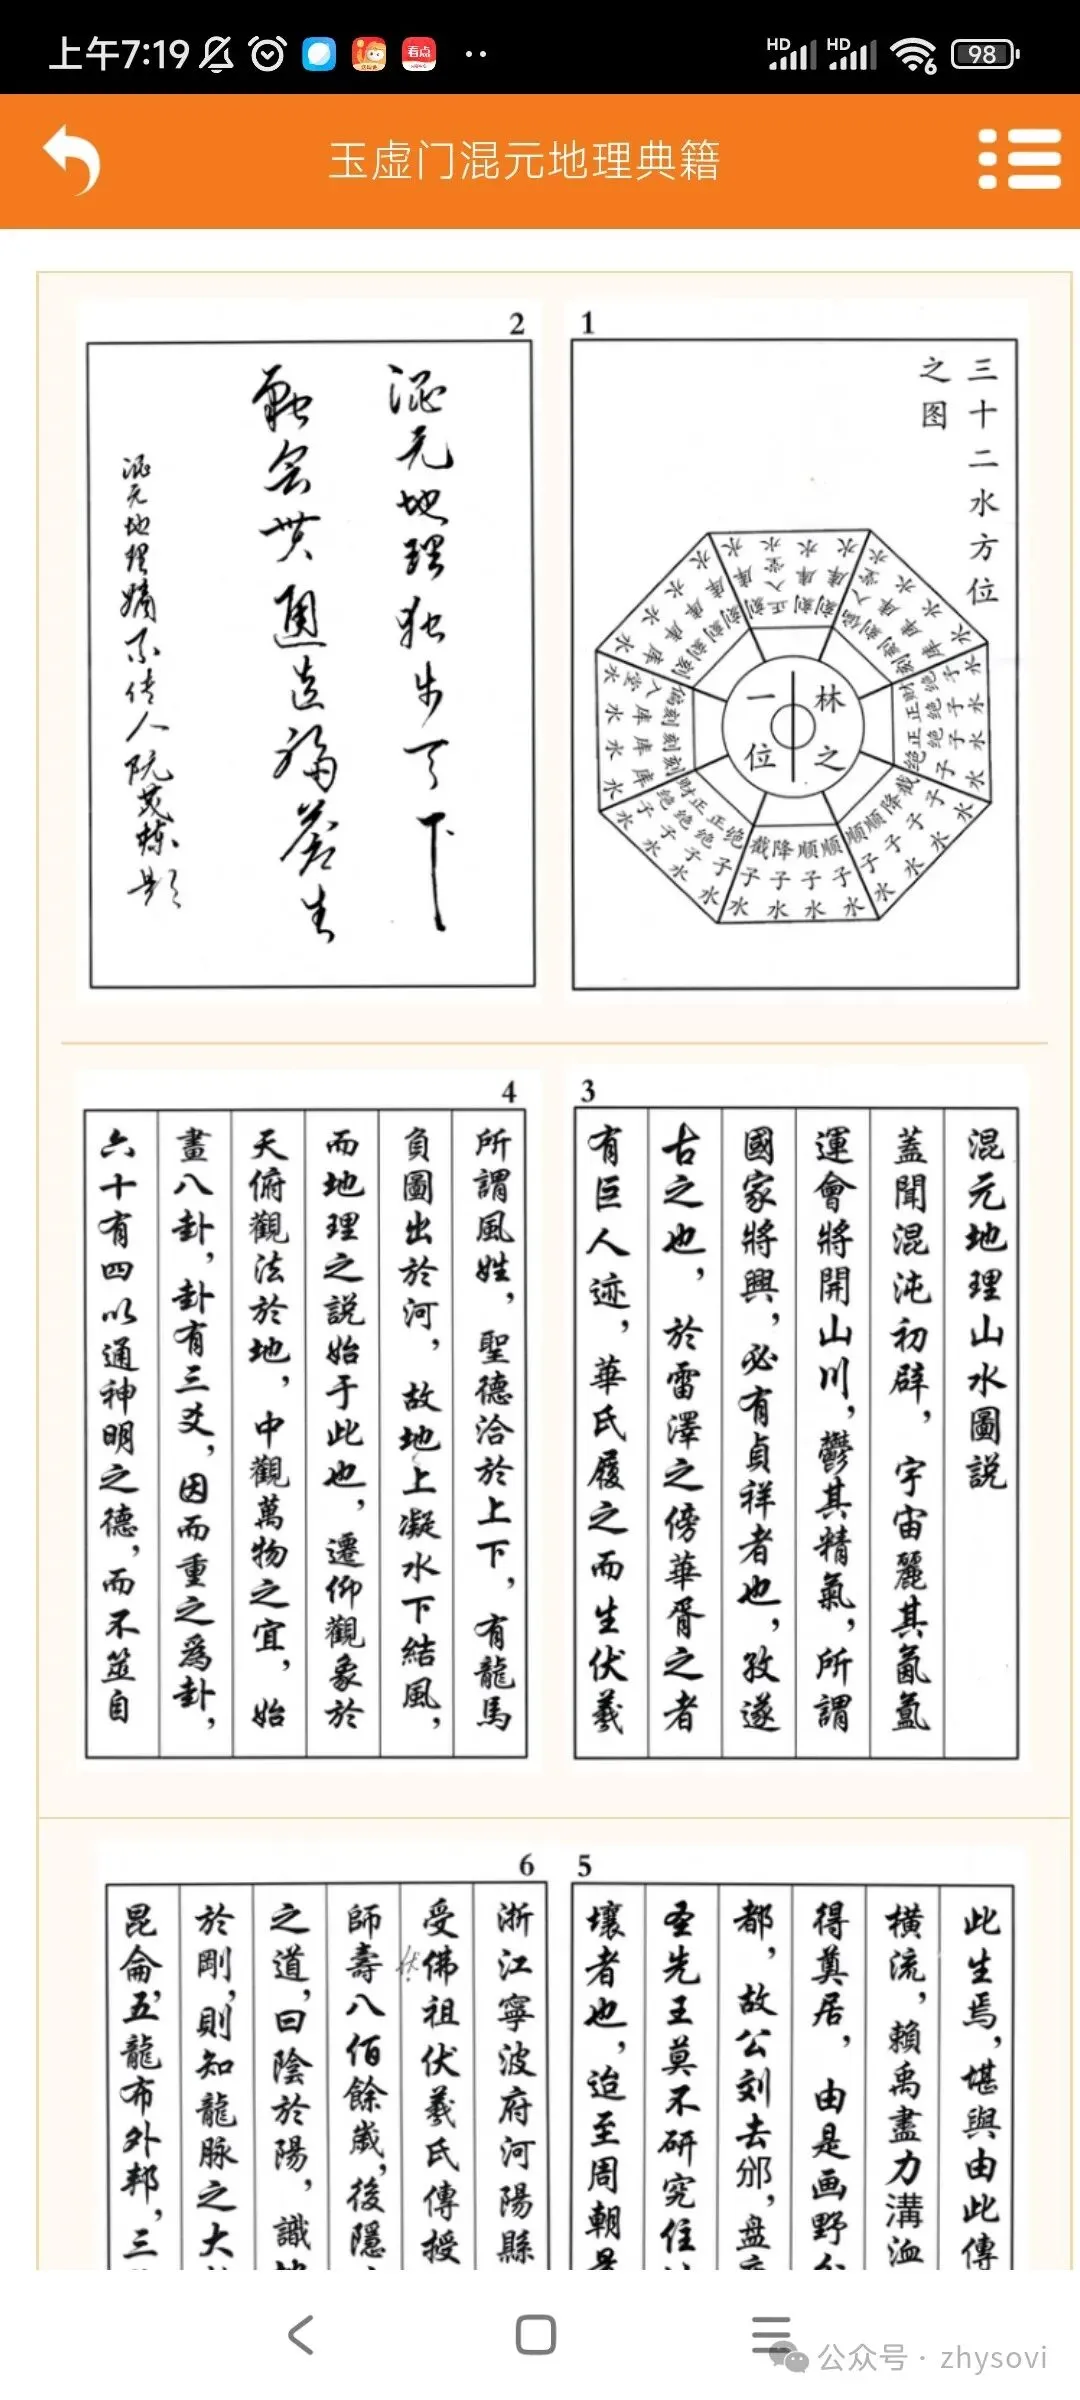 上午7:19
HD
HD
6
98
看点
玉虚门混元地理典籍
1
三十二水方位
之图
林之
一位
2
混元地理独步天下
融会贯通造福苍生
混元地理嫡系传人阮茂栋题
3
混元地理山水圖説
蓋聞混沌初辟，宇宙麗其氤氳
運會將開山川，鬱其精氣，所謂
國家將興，必有貞祥者也，孜遂
古之也，於雷澤之傍華胥之者
有巨人迹，華氏履之而生伏羲
4
所謂風姓，聖德洽於上下，有龍馬
負圖出於河，故地上凝水下結風，
而地理之説始于此也，遷仰觀象於
天俯觀法於地，中觀萬物之宜，始
畫八卦，卦有三爻，因而重之爲卦，
六十有四以通神明之德，而不筮自
5
此生焉，堪與由此傳
橫流，賴禹盡力溝洫
得奠居，由是画野
都，故公刘去邠，盘
圣先王莫不研究住
壤者也，迨至周朝
6
浙江寧波府河陽縣
受佛祖伏羲氏傳授
師壽八佰餘歲，後隱
之道，曰陰於陽，識
於剛，則知龍脉之大
昆侖，五龍布外邦，三
公众号 · zhysovi